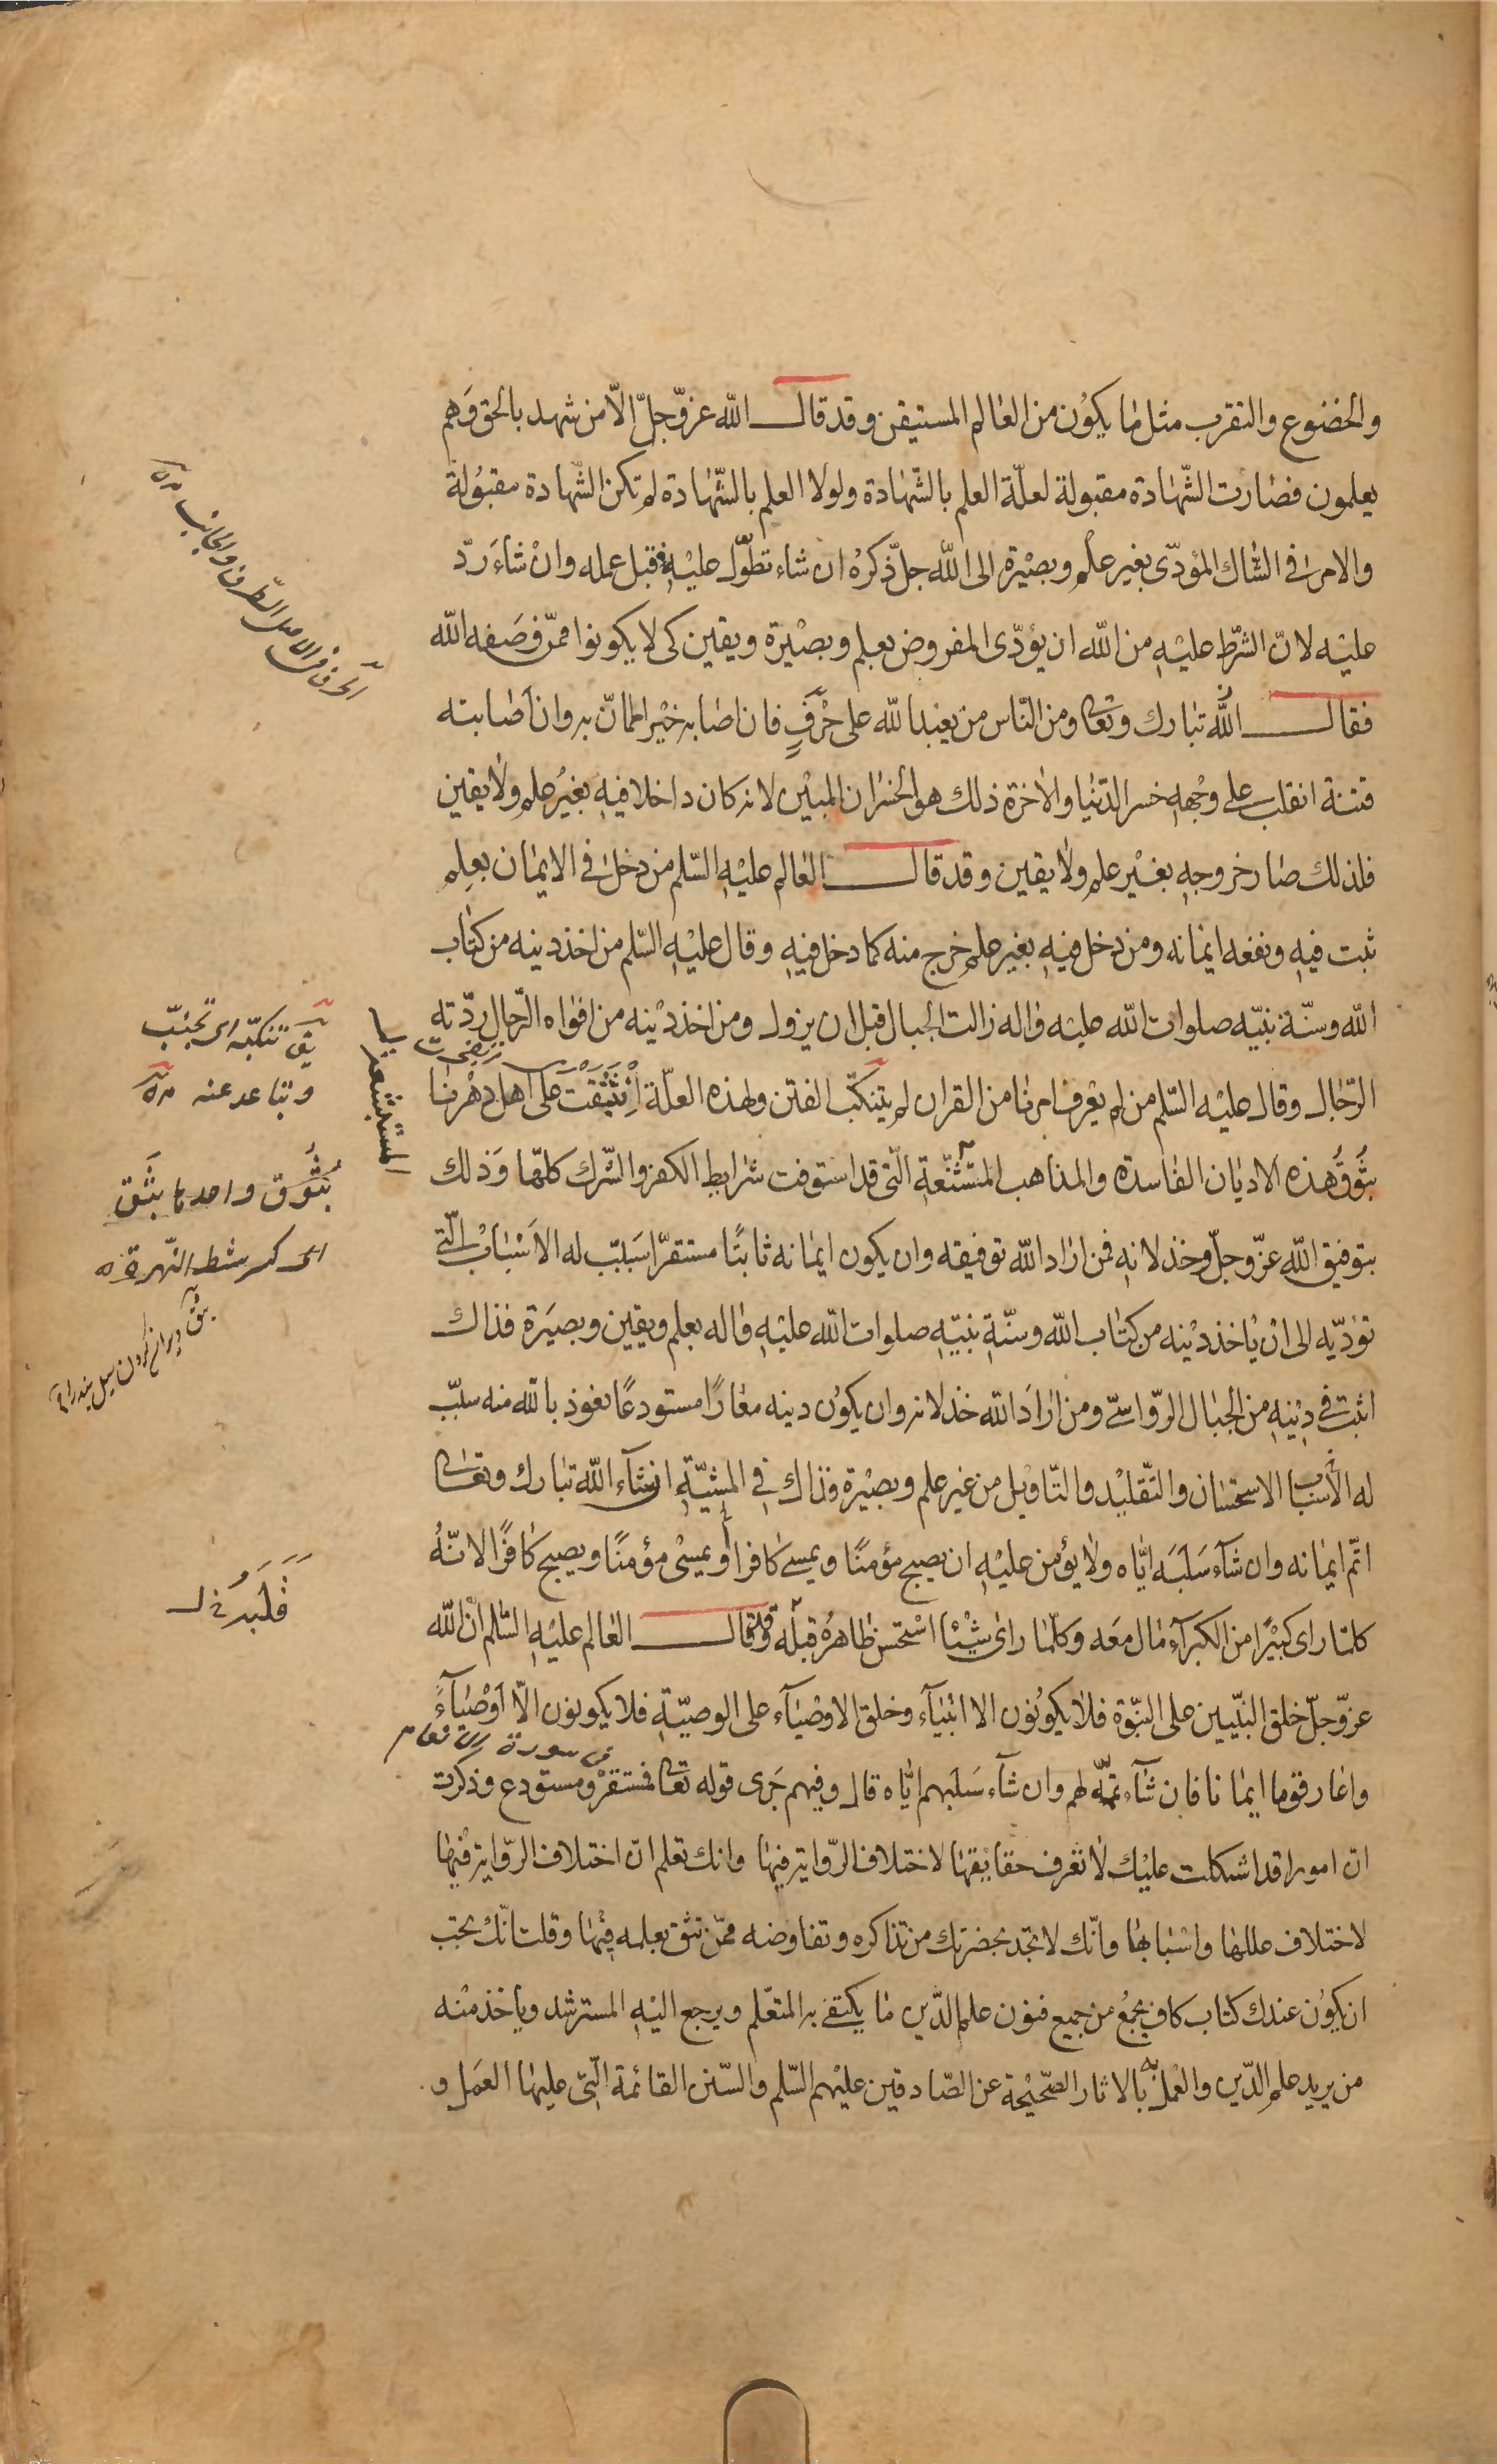 والخضوع والتقرب مثل ما يكون من العالم المستيقن وقد قال الله عزّ وجلّ الّا من شهد بالحق وَهم
يعلمون فصارت الشّهادة مقبولة لعلّة العلم بالشّهادة ولولا العلم بالشّهادة لم تكن الشّهادة مقبُولة
والامر في الشّاك المؤدّى بغير علم وبصيْرة الى الله جلّ ذكرهُ ان شاء تطوّل عليْهِ فقبل عمله وانْ شاءَ ردّ
عليْه لانّ الشّرط عليْهِ من الله ان يؤدّى المفروض بعلم وبصيْرة ويقين كى لا يكونوا ممّن وَصَفه الله
فقال الله تبارك وتعالى ومن النّاس من يعْبد الله على حَرْفٍ فان اصابه خيْر اطمانّ به وان اَصابته
فتنة انقلب على وجْهِهِ خسر الدّنيا والاٰخرة ذلك هو الخسْران المبيْن لانه كان داخلا فيهِ بغيْر علم ولا يقين
فلذلك صار خروجهِ بغيْر علم ولا يقين وقد قال العالم عليْهِ السّلم من دخل في الايمان بعِلم
ثبت فيهِ ونفعه ايمانه ومن دخل فيهِ بغير علم خرج منه كما دخل فيهِ وقال عليْهِ السّلم من اخذ دينه من كتاب
الله وسنّة نبيّه صلوات الله عليْه واله زالت الجبال قبل ان يزول ومن اخذ ديْنه من افواه الرّجال ردّته
الرّجال وقال عليْه السّلم من لم يعْرف امرنا من القران لم يتنكّب الفتن ولهذه العلّة اِنْبَثَقَتْ على اهل دهْرنا
بُثُوقُ هذه الاديان الفاسدة والمذاهب المتشنّعةِ الّتى قد استوفت شرايط الكفر والشّرك كلّها وَذلك
بتوفيق الله عزّ وجلّ وخذلانهِ فمن اراد الله توفيقه وان يكون ايمانه ثابتًا مستقرّا سَبّب له الاَسْبابْ الّتى
تؤدّيه الى انْ يأخذ ديْنه من كتاب الله وسنّةِ نبيّهِ صلوات الله عليْهِ واله بعلم ويقين وبصيَرة فذاك
اثبت في ديْنِهِ من الجبال الرّواسىّ ومن ارادَ الله خذلانه وان يكوُن دينه معارًا مستودعًا نعوذ بالله منه سبّب
له الأسباب الاستحسان والتّقليْد والتّاويْل من غير علم وبصيْرة فذاك فى المشيّةِ ان شآء الله تبارك وتعالى
اتمّ ايمانه وان شآء سَلَبَه ايّاه ولا يؤمن عليْهِ ان يصبح مؤمنًا ويمسى كافرا او يمسىْ مؤمنًا ويصبح كافرًا لانّهُ
كلّما راى كبيْرًا من الكبرآء مال معَه وكلّما راى شيْئًا اسْتحسن ظاهرهُ قبلَه وقد قال العالم عليْهِ السّلم انّ الله
عزّ وجلّ خلق النبّيين على النبّوة فلا يكونُون الا انبْيآء وخلق الاوصْيآء على الوصيّةِ فلا يكونون الّا اَوْصْيآءً
واعار قوما ايمانا فان شآء تمّه لهم وان شآء سَلَبَهم ايّاه قال وفيهم جَرى قوله تعالى فمستقرّ ومستودع وذكرت
انّ امورا قد اشكلت عليْك لا تعْرف حقايْقها لاختلاف الرّواية فيها وانك تعلم انّ اختلاف الرّواية فيْها
لاختلاف عللها واسْبابها وانّك لا تجد بحضرتك من تذاكره وتفاوضه ممّن تثق بعلمه فيْها وقلت انّك تحبّ
ان يكوُن عندك كتاب كاف يجمعُ من جميع فنون علم الدّين ما يكتفى به المتعلّم ويرجع اليْهِ المسترشد ويأخذ منْه
من يريد علم الدّين والعْمل به بالاثار الصّحيْحة عن الصّادقين عليْهم السّلم والسّنن القائمة الّتى عليها العَمل و
الحرف في الاصل الطّرف والجانب
يق تنكّبه اى تجنّبه
وتباعد عنه
المستبشعة
بُثُوق واحدها بَثَق
اى كسر شط النّهر
من سورة الانعام